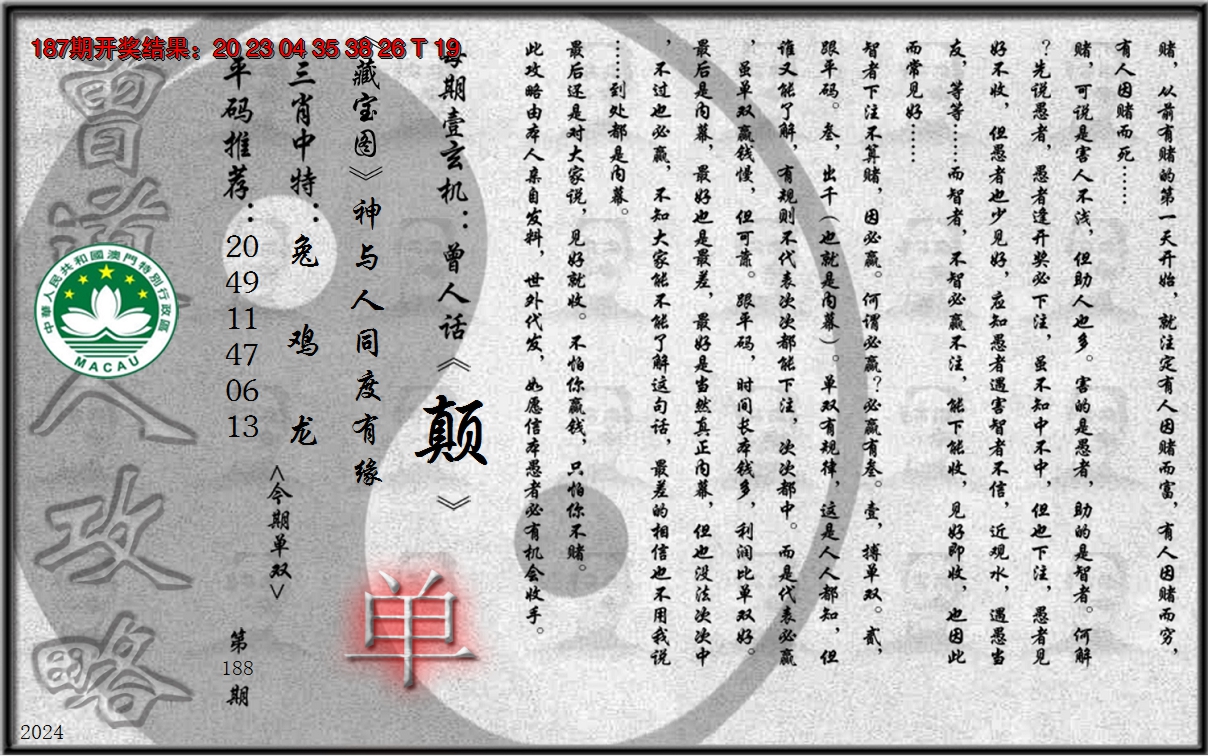 187期开奖结果：20 23 04 35 38 26 T 19
赌，从前有赌的第一天开始，就注定有人因赌而富，有人因赌而穷，
有人因赌而死……
赌，可说是害人不浅，但助人也多。害的是愚者，助的是智者。何解
？先说愚者，愚者逢开奖必下注，虽不知中不中，但也下注，愚者见
好不收，但愚者也少见好，应知愚者遇害智者不信，近观水，遇愚当
友，等等……而智者，不智必赢不注，能下能收，见好即收，也因此
而常见好……
智者下注不算赌，因必赢。何谓必赢？必赢有叁。壹，搏单双。贰，
跟平码。叁，出千（也就是内幕）。单双有规律，这是人人都知，但
谁又能了解，有规则不代表次次都能下注，次次都中。而是代表必赢
，虽单双赢钱慢，但可靠。跟平码，时间长本钱多，利润比单双好。
最后是内幕，最好也是最差，最好是当然真正内幕，但也没法次次中
，不过也必赢，不知大家能不能了解这句话，最差的相信也不用我说
……到处都是内幕。
最后还是对大家说，见好就收。不怕你赢钱，只怕你不赌。
此攻略由本人亲自发料，世外代发，如愿信本愚者必有机会收手。
每期壹玄机：曾人话《颠》
《藏宝图》神与人同度有缘
单
三肖中特：兔 鸡 龙
<今期单双>
平码推荐：20 49 11 47 06 13
第188期
曾道人攻略
中華人民共和國澳門特別行政區
MACAU
2024